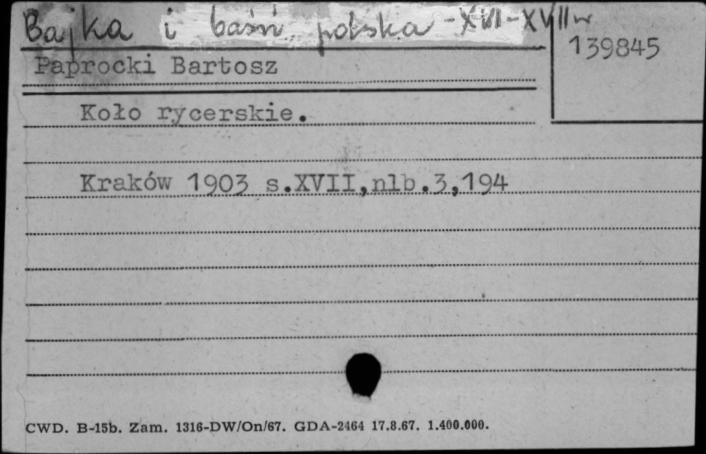 Bajka i baśń polska - XVI-XVII w
139845
Paprocki Bartosz
Koło rycerskie.
Kraków 1903 s.XVII,nlb.3,194
CWD. B-15b. Zam. 1316-DW/On/67. GDA-2464 17.8.67. 1.400.000.